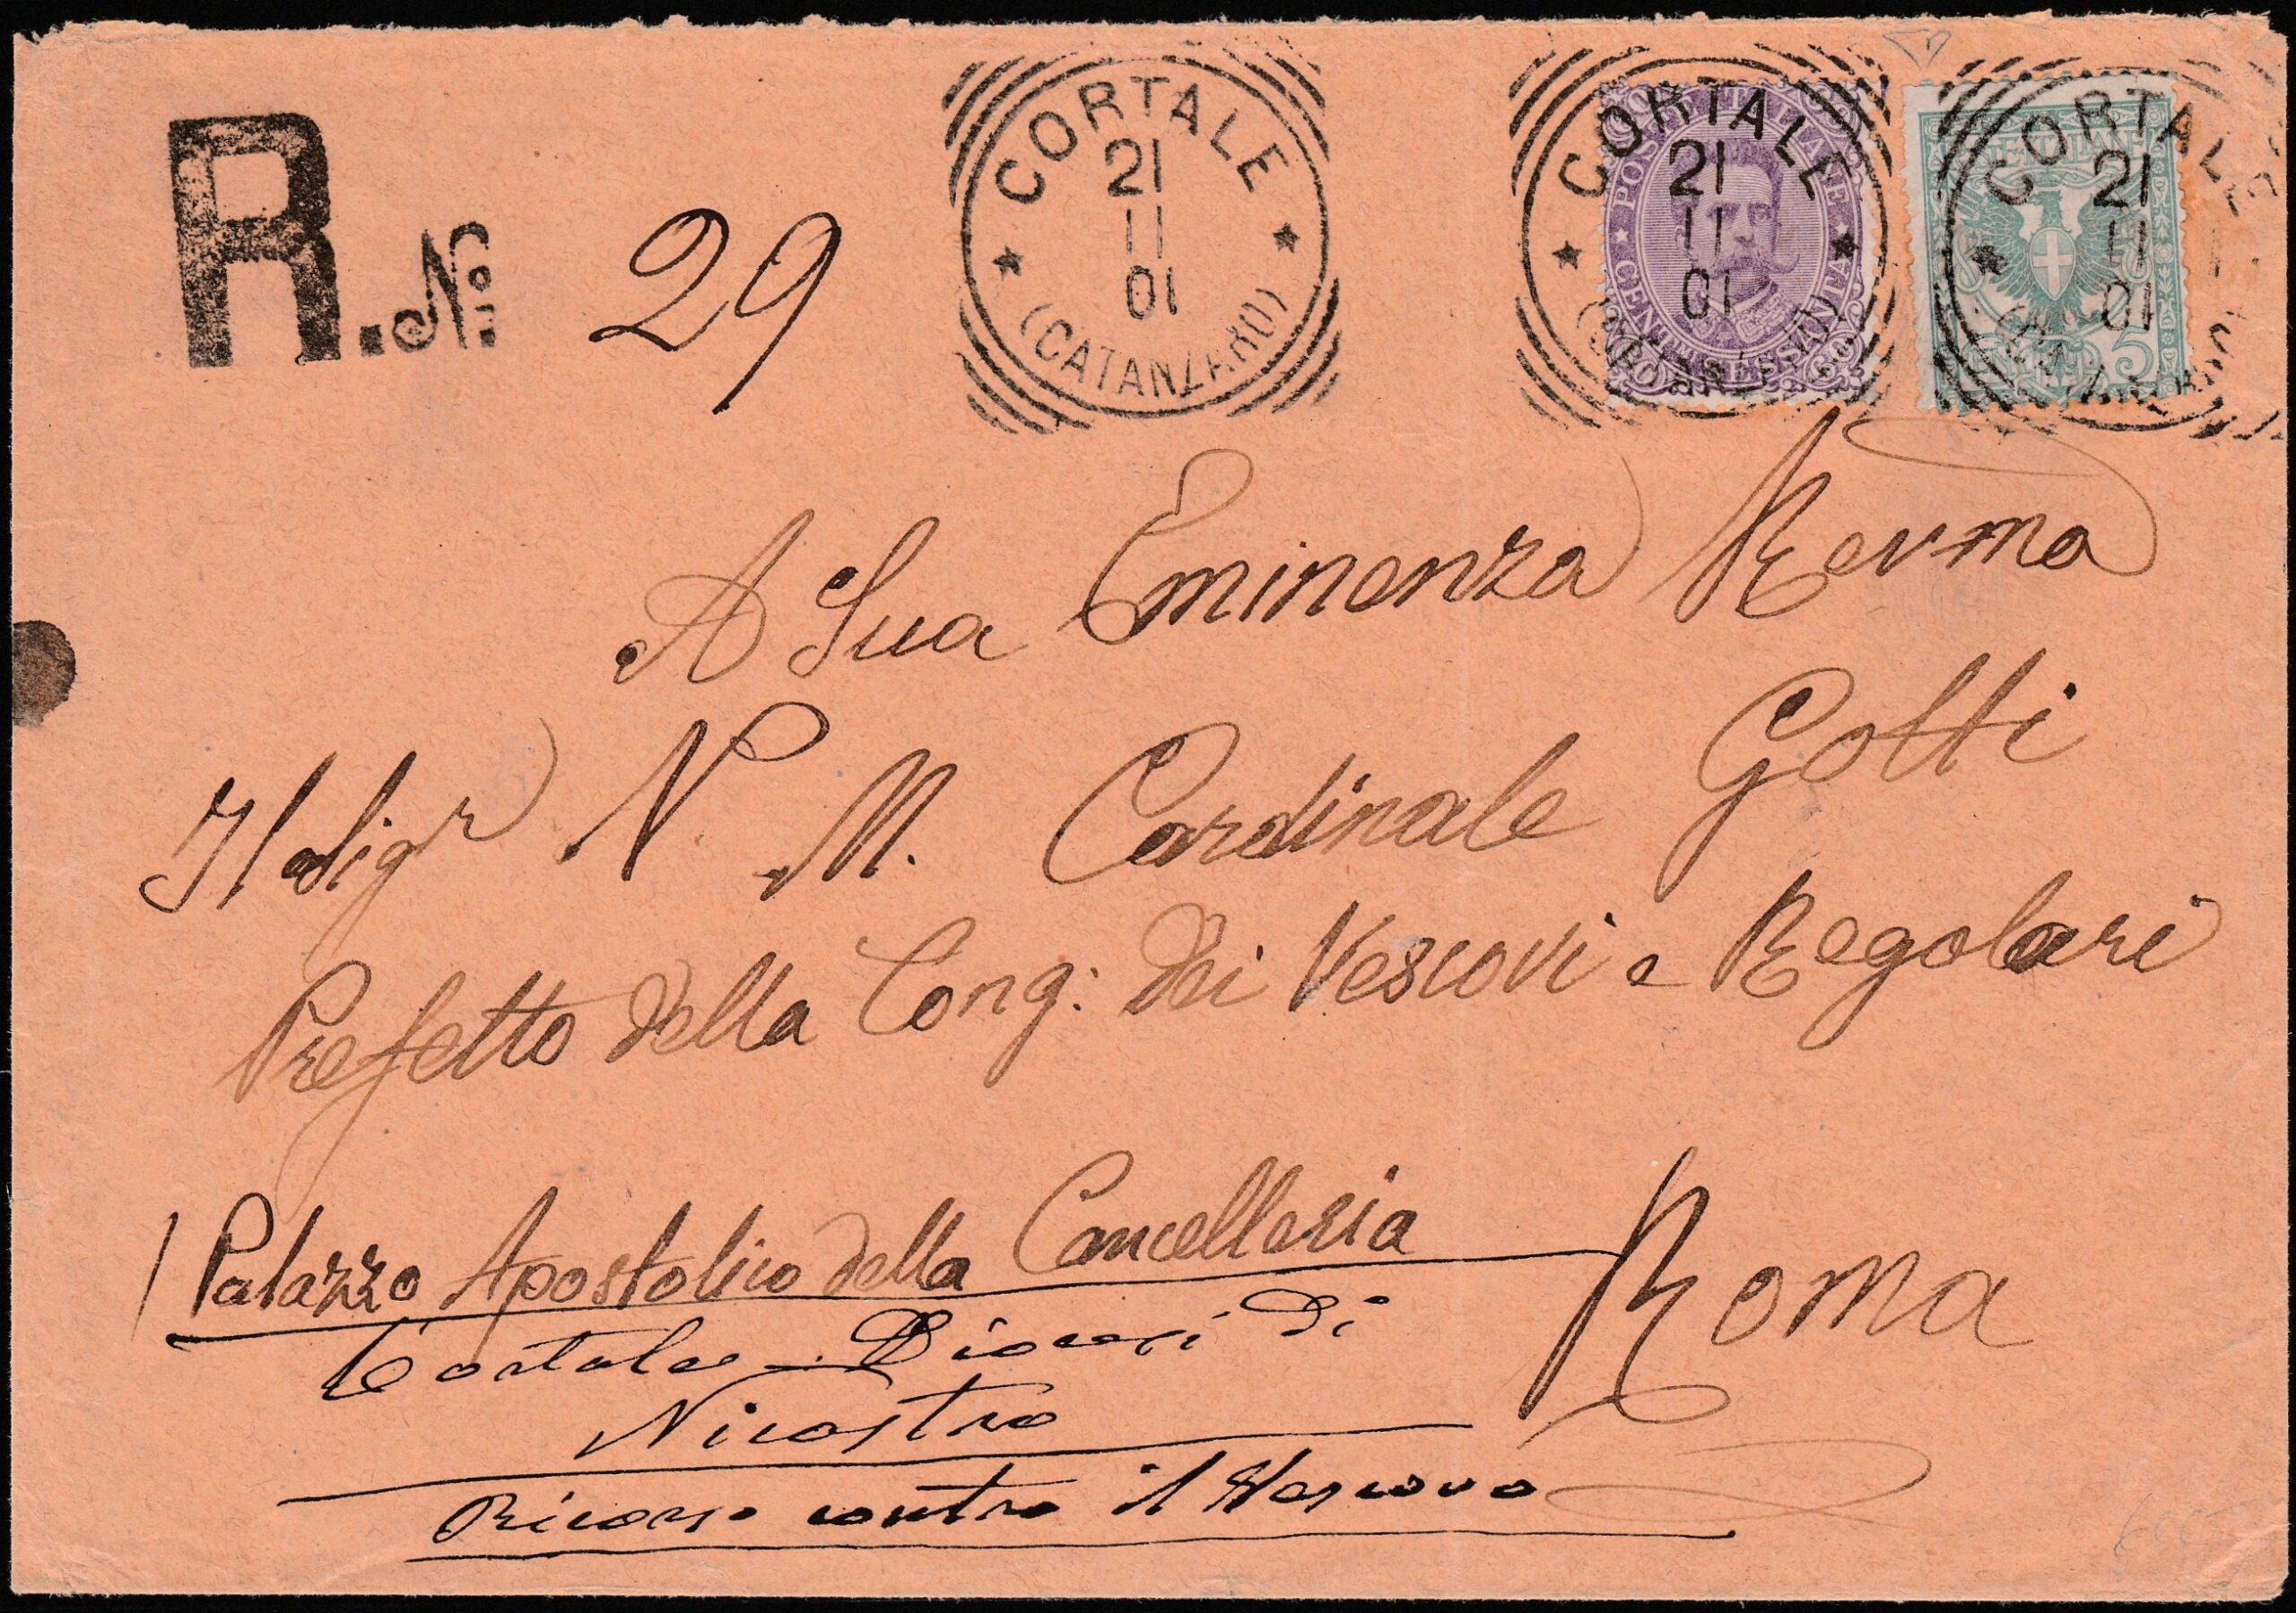 R. No: 29
CORTALE
21
11
01
(CATANZARO)
CORTALE
21
11
01
POSTE ITALIANE
CORTALE
21
11
01
5
A Sua Eminenza Revma
Il Sigr N. M. Cardinale Gotti
Prefetto della Cong: dei Vescovi e Regolari
Palazzo Apostolico della Cancelleria
Roma
Cortale Diocesi di
Nicastro
Ricorso contro il Vescovo